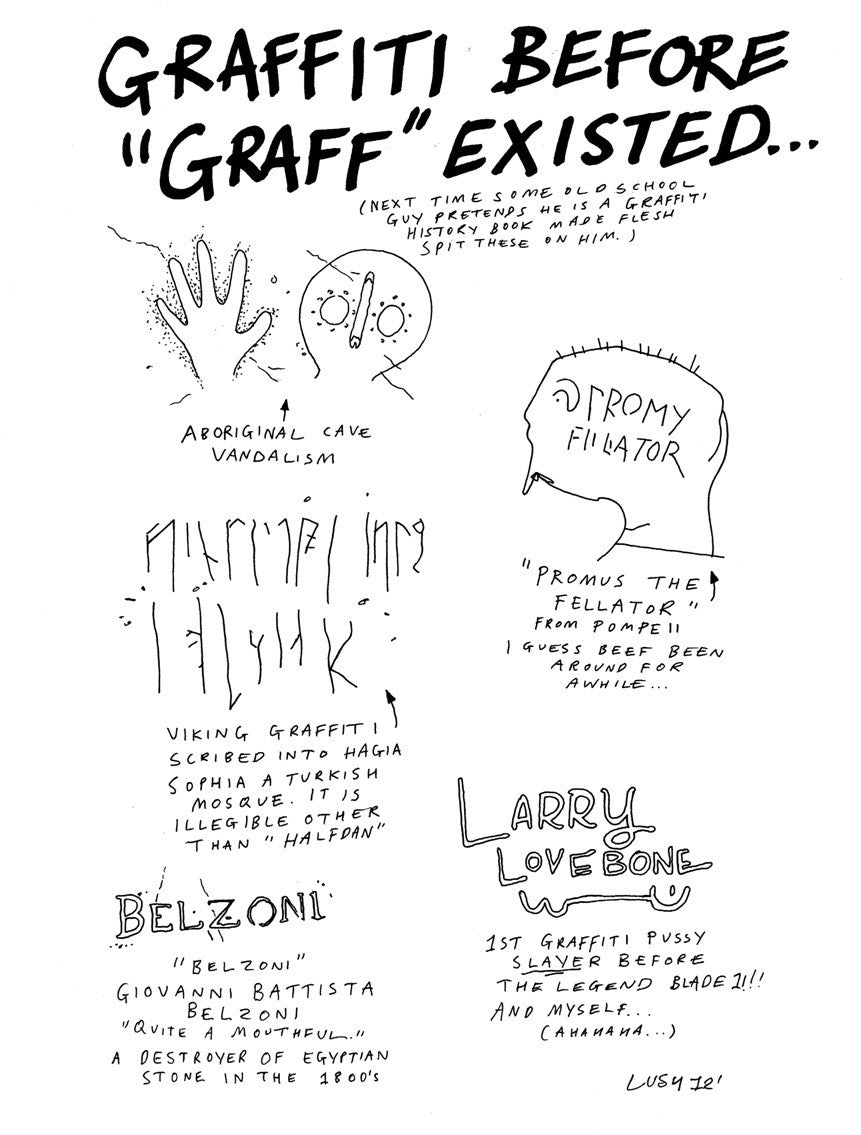 GRAFFITI BEFORE
"GRAFF" EXISTED...
(NEXT TIME SOME OLD SCHOOL
GUY PRETENDS HE IS A GRAFFITI
HISTORY BOOK MADE FLESH
SPIT THESE ON HIM.)
ABORIGINAL CAVE
VANDALISM
PROMY
FILLATOR
"PROMUS THE
FELLATOR"
FROM POMPEII
I GUESS BEEF BEEN
AROUND FOR
AWHILE...
VIKING GRAFFITI
SCRIBED INTO HAGIA
SOPHIA A TURKISH
MOSQUE. IT IS
ILLEGIBLE OTHER
THAN "HALFDAN"
LARRY
LOVEBONE
1ST GRAFFITI PUSSY
SLAYER BEFORE
THE LEGEND BLADE 1!!!
AND MYSELF...
(AHAHAHA...)
BELZONI
"BELZONI"
GIOVANNI BATTISTA
BELZONI
"QUITE A MOUTHFUL."
A DESTROYER OF EGYPTIAN
STONE IN THE 1800'S
LUSH 12'